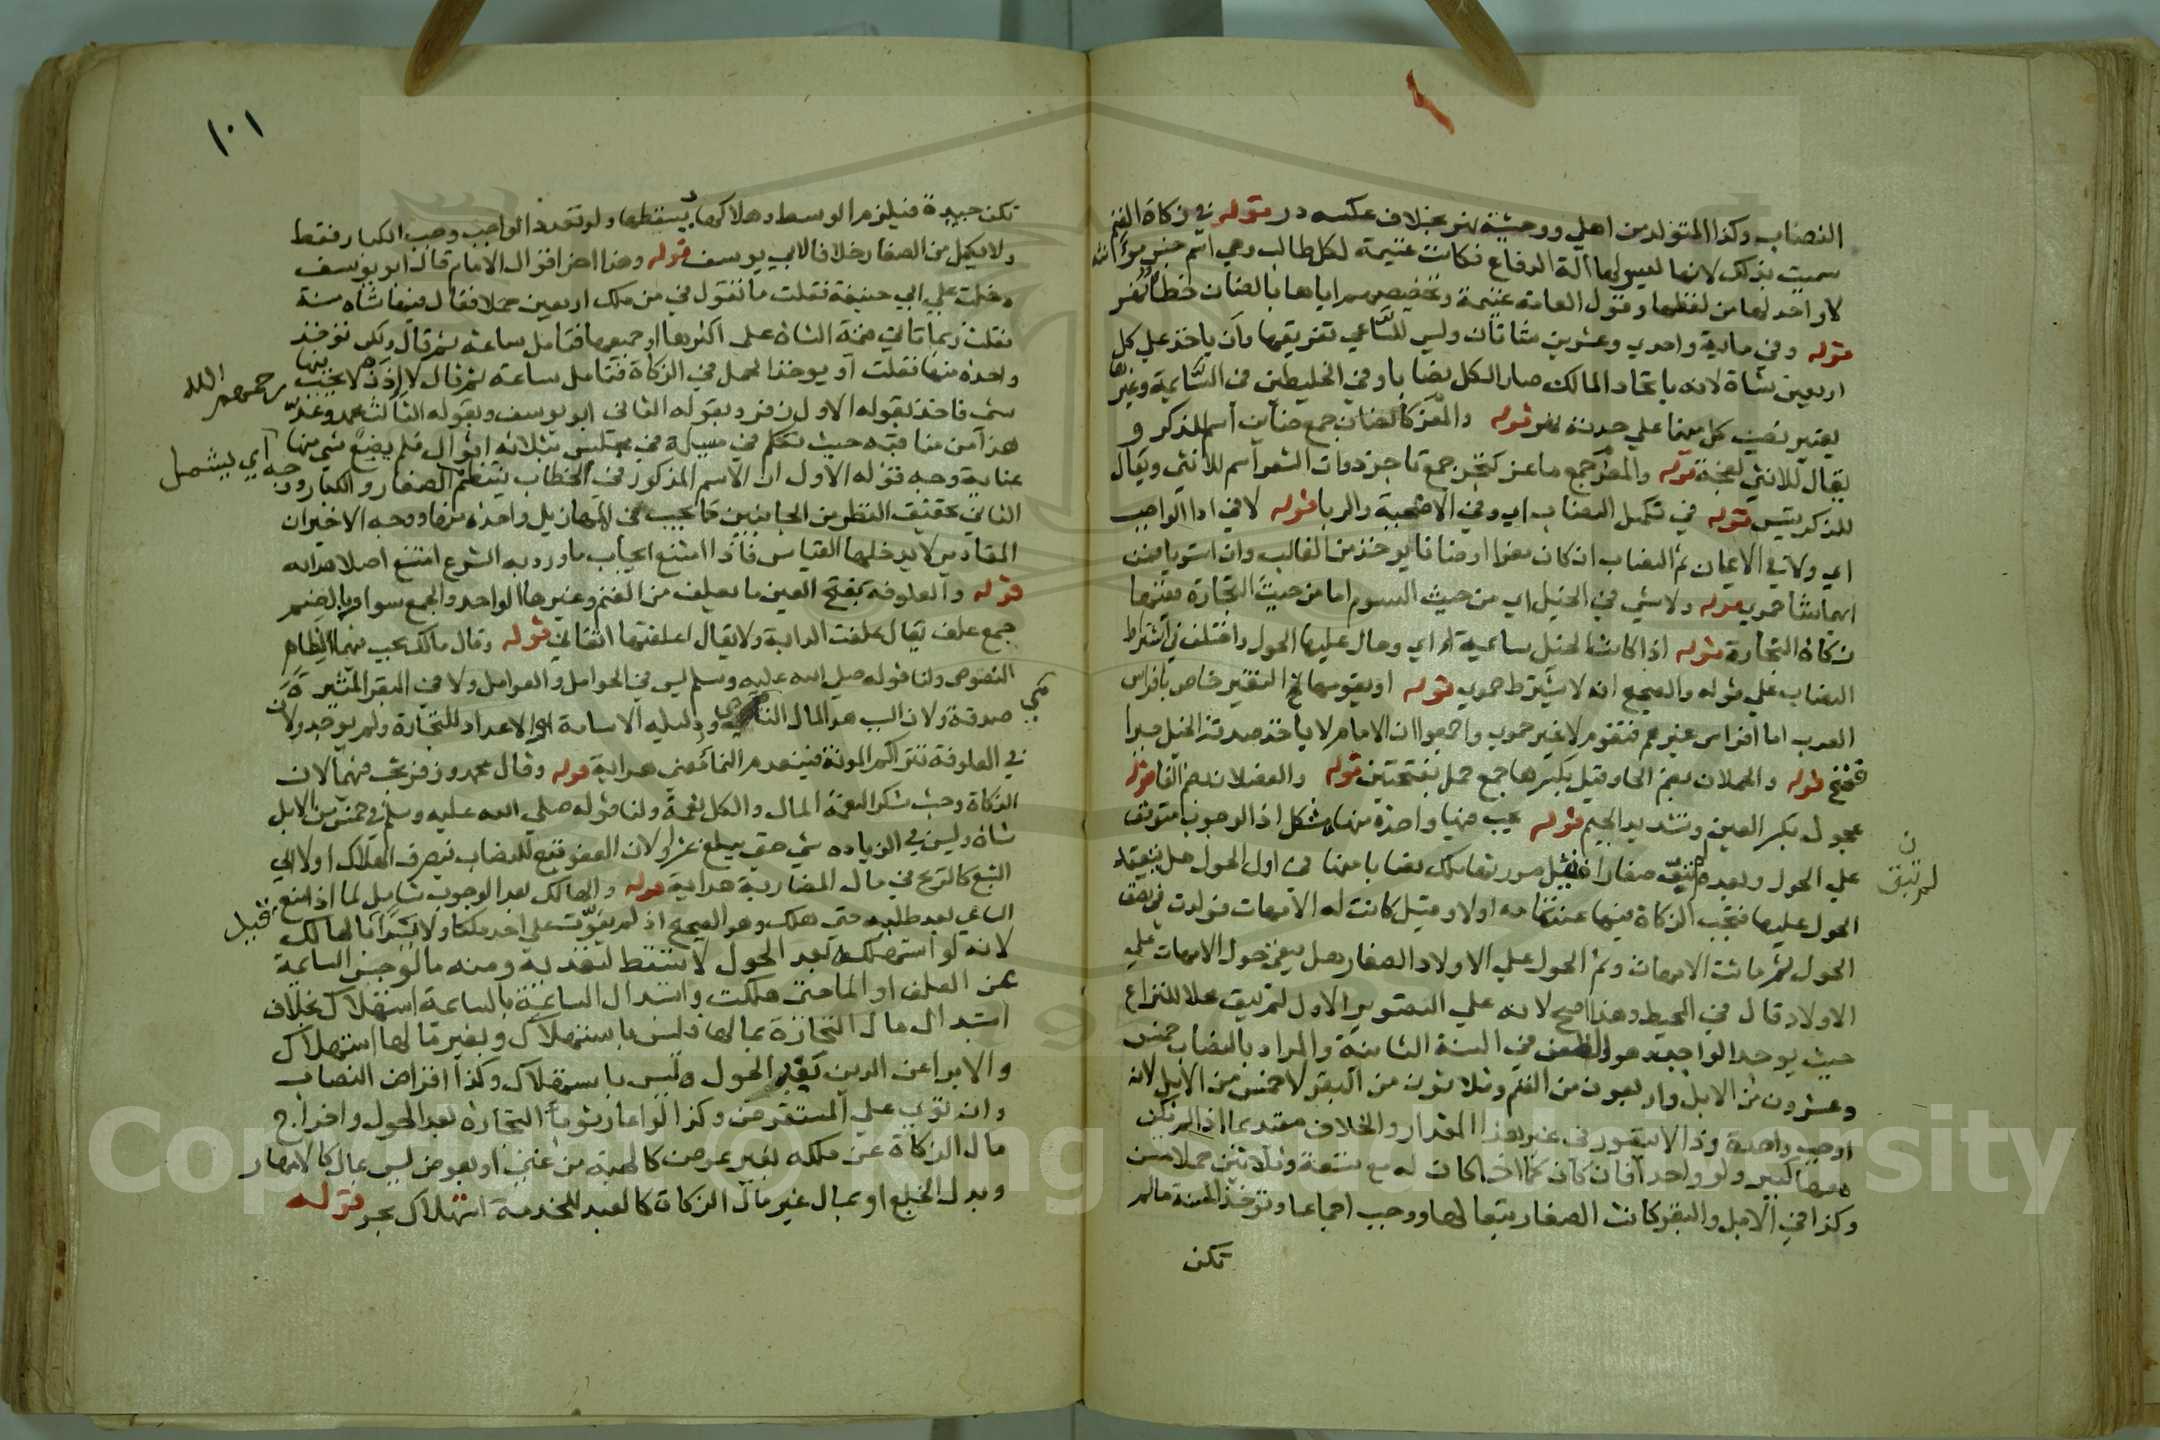 النصاب وكذا المتولد من اهلي ووحشية نهر بخلاف عكسه در قوله في زكاة الغنم
سميت بذلك لانها ليس لها آلة الدفاع فكانت غنيمة لكل طالب وهي اسم جنس مؤنث
لا واحد لها من لفظها وقول العامة غنيمة وتخصيص سراياها بالضان خطأ نهر
قوله وفي ماية واحدي وعشرين شاتان وليس للساعي تفريقها وان ياخذ علي كل
اربعين شاة لانه باتحاد المالك صار الكل نصابا وفي الخليطين في السايمة وغيرها
يعتبر نصيب كل منهما علي حدته نهر قوله والمعز كالضان جمع ضائن اسم للذكر و
يقال للانثي نعجة قوله والمعز جمع ماعز كتجر جمع تاجز ذوات الشعر اسم للانثي ويقال
للذكر تيس قوله في تكميل النصاب اي وفي الاضحية والربا قوله لا في ادا الواجب
اي ولا في الايمان ثم النصاب ان كان معزا او ضانا يوخذ من الغالب وان استويا فمن
ايهما شا حموي قوله ولا شي في الخيل اي من حيث السوم اما من حيث التجارة ففيها
زكاة التجارة قوله اذا كانت الخيل سايمية اي وحال عليها الحول واختلف في اشتراط
النصاب علي قوله والصحيح انه لا يشترط حموي قوله او يقومها التخيير خاص بافراس
العرب اما افراس غيرهم فتقوم لا غير حموي واجمعوا ان الامام لا ياخذ صدقة الخيل جبرا
فتح قوله والحملان بضم الحا وقيل بكسرها جمع حمل بفتحتين قوله والفصلان بضم الفا قوله
عجول بكسر العين وتشديد الجيم قوله يجب فيها واحدة منها مشكل اذ الوجوب متوقف
علي الحول وبعده لم تبق صغارا قيل صورتها ملك نصابا منها في اول الحول هل ينعقد
لم تبق
الحول عليها فتجب الزكاة فيها عندتمامه اولا وقيل كانت له الامهات فولدت في نصف
الحول ثم ماتت الامهات وتم الحول علي الاولاد الصغار هل يبقي حول الامهات علي
الاولاد قال في المحيط وهذا اصح لانه علي التصوير الاول لم تبق محلا للنزاع
حيث يوخذ الواجب هو الطعن في السنة الثانية والمراد بالنصاب خمس
وعشرون من الابل واربعون من الغنم وثلاثون من البقر لا خمس من الابل لانه
اوجب واحدة وذا لا يتصور في غير هذا المقدار والخلاف مقيد بما اذا لم تكن
معها كبير ولو واحدا فان كان كما اذا كانت له مع تسعة وثلاثين حملا مسن
وكذا في الابل والبقر كانت الصغار تبعا لها ووجب اجماعا وتوخذ المسنة مالم
تكن
١٠١
تكن جيدة فيلزم الوسط وهلاكها يسقطها ولو تعدد الواجب وجب الكبار فقط
ولا يكمل من الصغار خلافا لابي يوسف قوله وهذا اخر اقوال الامام قال ابو يوسف
دخلت علي ابي حنيفة فقلت ما تقول في من ملك اربعين حملا فقال فيها شاة مسنة
فقلت ربما تاتي قيمة الشاة علي اكثرها او جميعها فتامل ساعة ثم قال ولكن توخذ
واحدة منها فقلت او يوخذ الحمل في الزكاة فتامل ساعة ثم قال لا اذ ذاك لا يجب فيها
شي فاخذ بقوله الاول زفر وبقوله الثاني ابو يوسف وبقوله الثالث محمد وعد
رحمهم الله
هذا من مناقبه حيث تكلم في مسيلة في مجلس بثلاثة اقوال فلم يضع شي منها
عناية وجه قوله الاول ان الاسم المذكور في الخطاب ينتظم الصغار والكبار ووجه
اي يشمل
الثاني تحقيق النظر من الجانبين كما يجب في المهازيل واحدة منها ووجه الاخير ان
المقادير لا يدخلها القياس فاذا امتنع ايجاب ما ورد به الشرع امتنع اصلا هداية
قوله والعلوفة بفتح العين ما يعلف من الغنم وغيرها الواحد والجمع سوا وبالضم
جمع علف يقال علفت الدابة ولا يقال اعلفتها اتقاني قوله وقال مالك يجب فيهما لظاهر
النصوص ولنا قوله صلي الله عليه وسلم ليس في الحوامل والعوامل ولا في البقر المثيرة
صدقة ولان السبب هو المال النامي ودليله الاسامة او الاعداد للتجارة ولم يوجد ولان
في العلوفة تتراكم المونة فينعدم النما معني هداية قوله وقال محمد وزفر تجب فيهما لان
الزكاة وجبت شكرا لنعمة المال والكل نعمة ولنا قوله صلي الله عليه وسلم في خمس من الابل
شاة وليس في الزيادة شي حتي يبلغ عشرا ولان العفو تبع للنصاب فيصرف الهلاك اولا الي
التبع كالربح في مال المضاربة هداية قوله والهالك بعد الوجوب شامل لما اذا منع
الساعي بعد طلبه حتي هلك وهو الصحيح اذ لم يفوت علي احد ملكا ولا يدا قيد بالهالك
لانه لو استهلكه بعد الحول لا تسقط لتعديه ومنه مالو حبس السايمة
عن العلف او الما حتي هلكت واستبدال السايمة بالسايمة استهلاك بخلاف
استبدال مال التجارة بمالها فليس باستهلاك وبغير مالها استهلاك
والابرا عن الدين بعد الحول وليس باستهلاك وكذا اقراض النصاب
وان توي علي المستقرض وكذا لو اعار ثوب التجارة بعد الحول واخراج
مال الزكاة عن ملكه بغير عوض كالهبة من غني او بعوض ليس بمال كالامهار
وبدل الخلع او بمال غير مال الزكات كالعبد للخدمة استهلاك بحر قوله